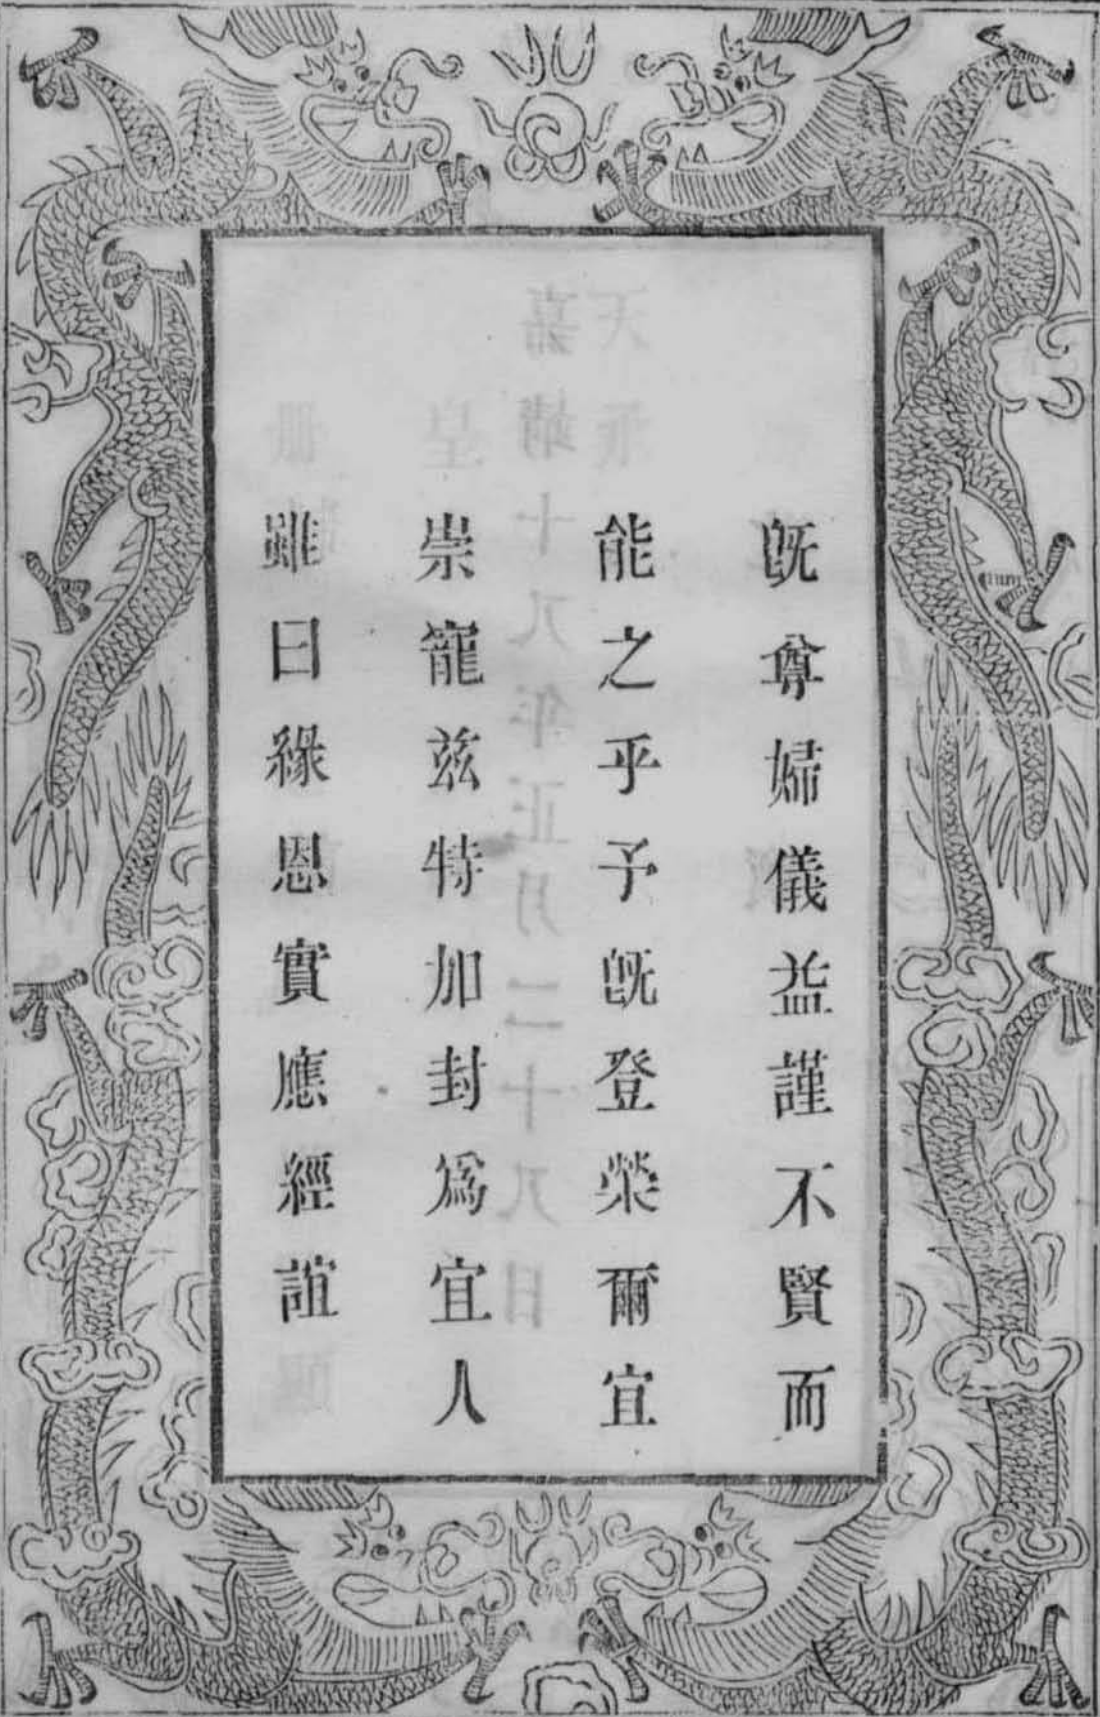 既尊婦儀益謹不賢而
能之乎予既登榮爾宜
崇寵茲特加封爲宜人
雖曰緣恩實應經誼